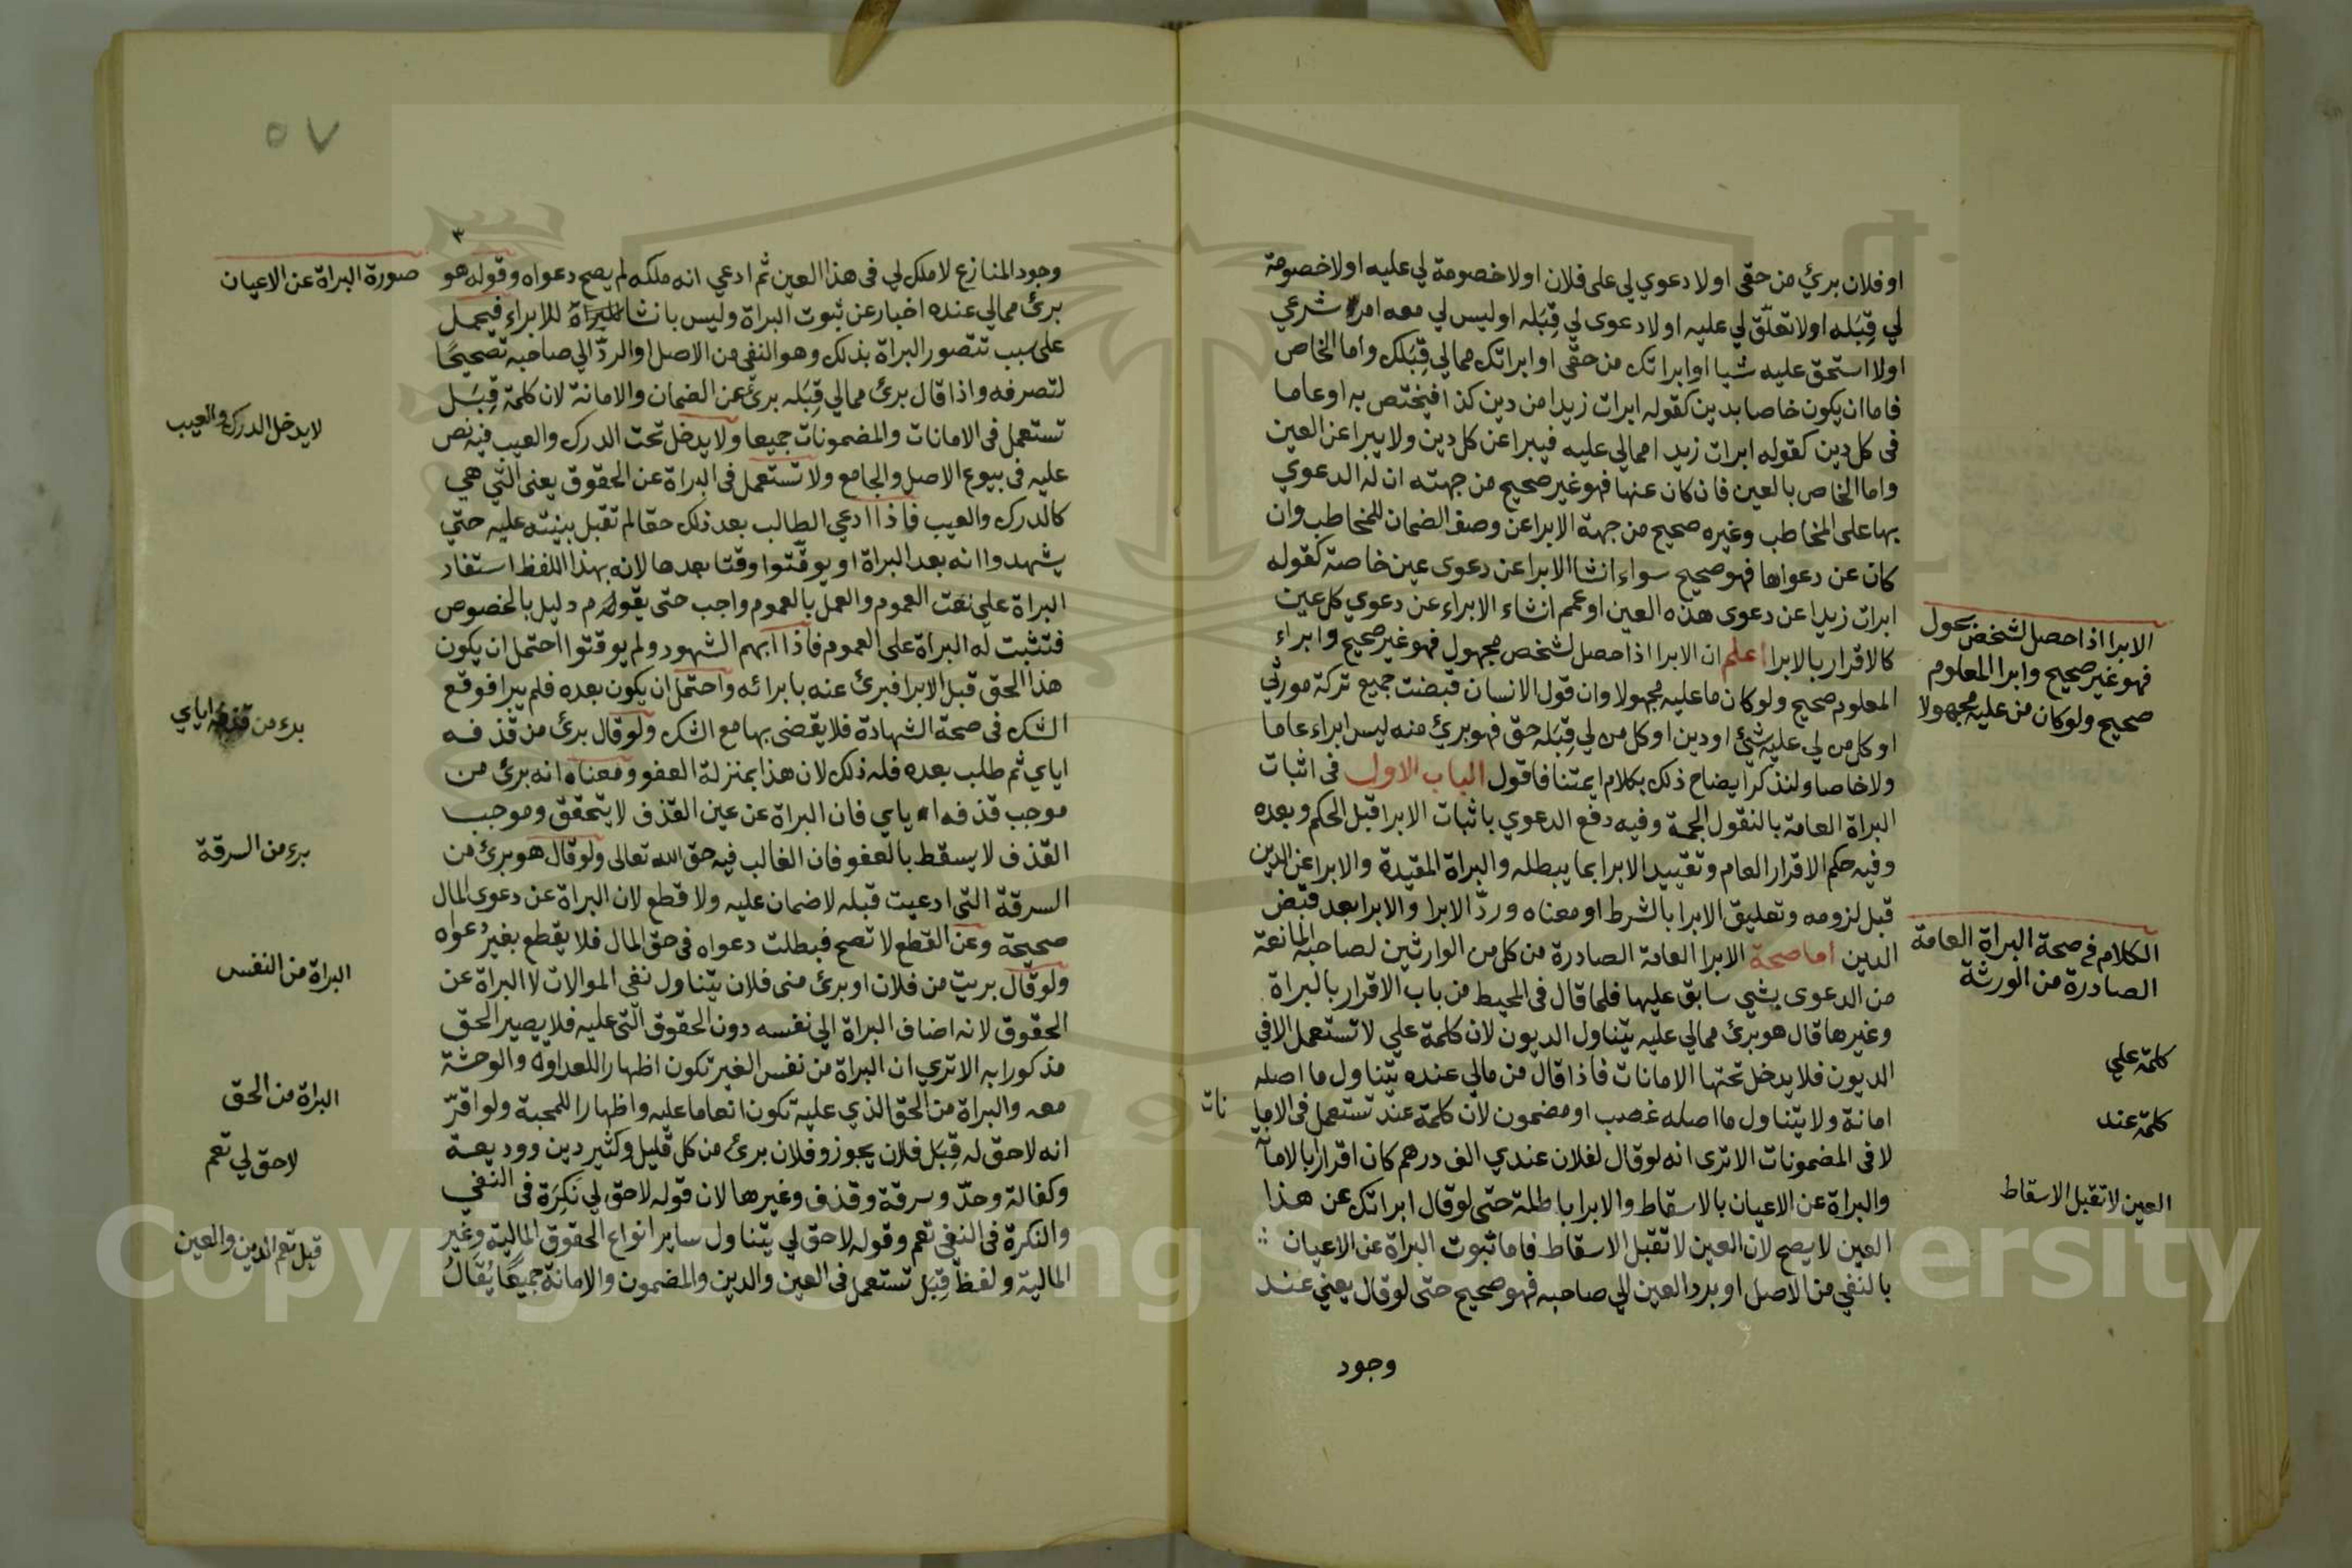 او فلان برئ من حقى او لا دعوي لى على فلان او لا خصومة لي عليه او لا خصومة
لي قِبَله او لا تعلّق لي عليه او لا دعوى لي قِبَله او ليس لي معه امر شرعي
او لا استحق عليه شيا او ابراتك من حقى او ابراتك ممالي قِبَلك واما الخاص
فاما ان يكون خاصا بدين كقوله ابرات زيدا من دين كذا فيختص به او عاما
فى كل دين كقوله ابرات زيدا ممالي عليه فيبرا عن كل دين ولا يبرا عن العين
واما الخاص بالعين فان كان عنها فهو غير صحيح من جهته ان له الدعوي
بها على المخاطب وغيره صحيح من جهة الابرا عن وصف الضمان للمخاطب وان
كان عن دعواها فهو صحيح سواء انشا الابرا عن دعوى عين خاصة كقوله
ابرات زيدا عن دعوى هذه العين او عمم انشاء الابراء عن دعوي كل عين
كالاقرار بالابرا اعلم ان الابرا اذا حصل لشخص مجهول فهو غير صحيح وابراء
المعلوم صحيح ولو كان ما عليه مجهولا وان قول الانسان قبضت جميع تركة مورثي
او كل من لي عليه شئ او دين او كل من لي قِبَله حق فهو برئ منه ليس ابراء عاما
ولا خاصا ولنذكر ايضاح ذلك بكلام ايمتنا فاقول الباب الاول فى اثبات
البراة العامة بالنقول الجمة وفيه دفع الدعوي باثبات الابرا قبل الحكم وبعده
وفيه حكم الاقرار العام وتقييد الابرا بما يبطله والبراة المقيدة والابرا عن الدين
قبل لزومه وتعليق الابرا بالشرط او معناه وردّ الابرا والابرا بعد قبض
الدين اما صحة الابرا العامة الصادرة من كل من الوارثين لصاحبه المانعة
من الدعوى بشي سابق عليها فلما قال فى المحيط من باب الاقرار بالبراة
وغيرها قال هو برئ ممالي عليه يتناول الديون لان كلمة علي لا تستعمل الا في
الديون فلا يدخل تحتها الامانات فاذا قال من مالي عنده يتناول ما اصله
امانة ولا يتناول ما اصله غصب او مضمون لان كلمة عند تستعمل فى الاما
نات
لا فى المضمونات الا ترى انه لو قال لفلان عندي الف درهم كان اقرارا بالاما
والبراة عن الاعيان بالاسقاط والابرا باطلة حتى لو قال ابراتك عن هذا
العين لا يصح لان العين لا تقبل الاسقاط فاما ثبوت البراة عن الاعيان
بالنفي من الاصل او برد العين الي صاحبه فهو صحيح حتى لو قال يعني عند
وجود
الابرا اذا حصل لشخص مجهول
فهو غير صحيح وابرا المعلوم
صحيح ولو كان من عليه مجهولا
الكلام فى صحة البراة العامة
الصادرة من الورثة
كلمة علي
كلمة عند
العين لا تقبل الاسقاط
٥٧
وجود المنازع لا ملك لي فى هذا العين ثم ادعي انه ملكه لم يصح دعواه وقوله هو
برئ ممالي عنده اخبار عن ثبوت البراة وليس بانشا للابراء فيحمل
على سبب تتصور البراة بذلك وهو النفي من الاصل او الردّ الي صاحبه تصحيحًا
لتصرفه واذا قال برئ ممالي قِبَله برئ عن الضمان والامانة لان كلمة قِبَل
تستعمل فى الامانات والمضمونات جميعا ولا يدخل تحت الدرك والعيب فيه نص
عليه فى بيوع الاصل والجامع ولا تستعمل فى البراة عن الحقوق يعنى التي هي
كالدرك والعيب فاذا ادعي الطالب بعد ذلك حقا لم تقبل بينته عليه حتي
يشهدوا انه بعد البراة او يوقّتوا وقتا بعدها لانه بهذا اللفظ استفاد
البراة على نعت العموم والعمل بالعموم واجب حتى يقوله م دليل بالخصوص
فتثبت له البراة على العموم فاذا ابهم الشهود ولم يوقتوا احتمل ان يكون
هذا الحق قبل الابرا فبرئ عنه بابرائه واحتمل ان يكون بعده فلم يبرا فوقع
الشك فى صحة الشهادة فلا يقضى بها مع الشك ولو قال برئ من قذفه
اياي ثم طلب بعده فله ذلك لان هذا بمنزلة العفو ومعناه انه برئ من
موجب قذفه اياي فان البراة عن عين القذف لا يتحقق وموجب
القذف لا يسقط بالعفو فان الغالب فيه حق الله تعالى ولو قال هو برئ من
السرقة التى ادعيت قبله لا ضمان عليه ولا قطع لان البراة عن دعوى المال
صحيحة وعن القطع لا تصح فبطلت دعواه فى حق المال فلا يقطع بغير دعواه
ولو قال بريت من فلان او برئ منى فلان يتناول نفي الموالات لا البراة عن
الحقوق لانه اضاف البراة الي نفسه دون الحقوق التى عليه فلا يصير الحق
مذكورا به الا تري ان البراة من نفس الغير تكون اظهارا للعداوة والوحشة
معه والبراة من الحق الذي عليه تكون انعاما عليه واظهارا للمحبة ولو اقرّ
انه لا حق له قِبَل فلان يجوز وفلان برئ من كل قليل وكثير دين ووديعة
وكفالة وحدّ وسرقة وقذف وغيرها لان قوله لا حق لي نَكِرَة فى النفي
والنكرة فى النفي تعم وقوله لا حق لي يتناول ساير انواع الحقوق المالية وغير
المالية ولفظ قِبَل تستعمل فى العين والدين والمضمون والامانة جميعًا يُقَالُ
صورة البراة عن الاعيان
لا يدخل الدرك والعيب
برء من قذفه اياي
برء من السرقة
البراة من النفس
البراة من الحق
لا حق لي تعم
قبل تعم الدين والعين
Copyright © King Saud University
1957